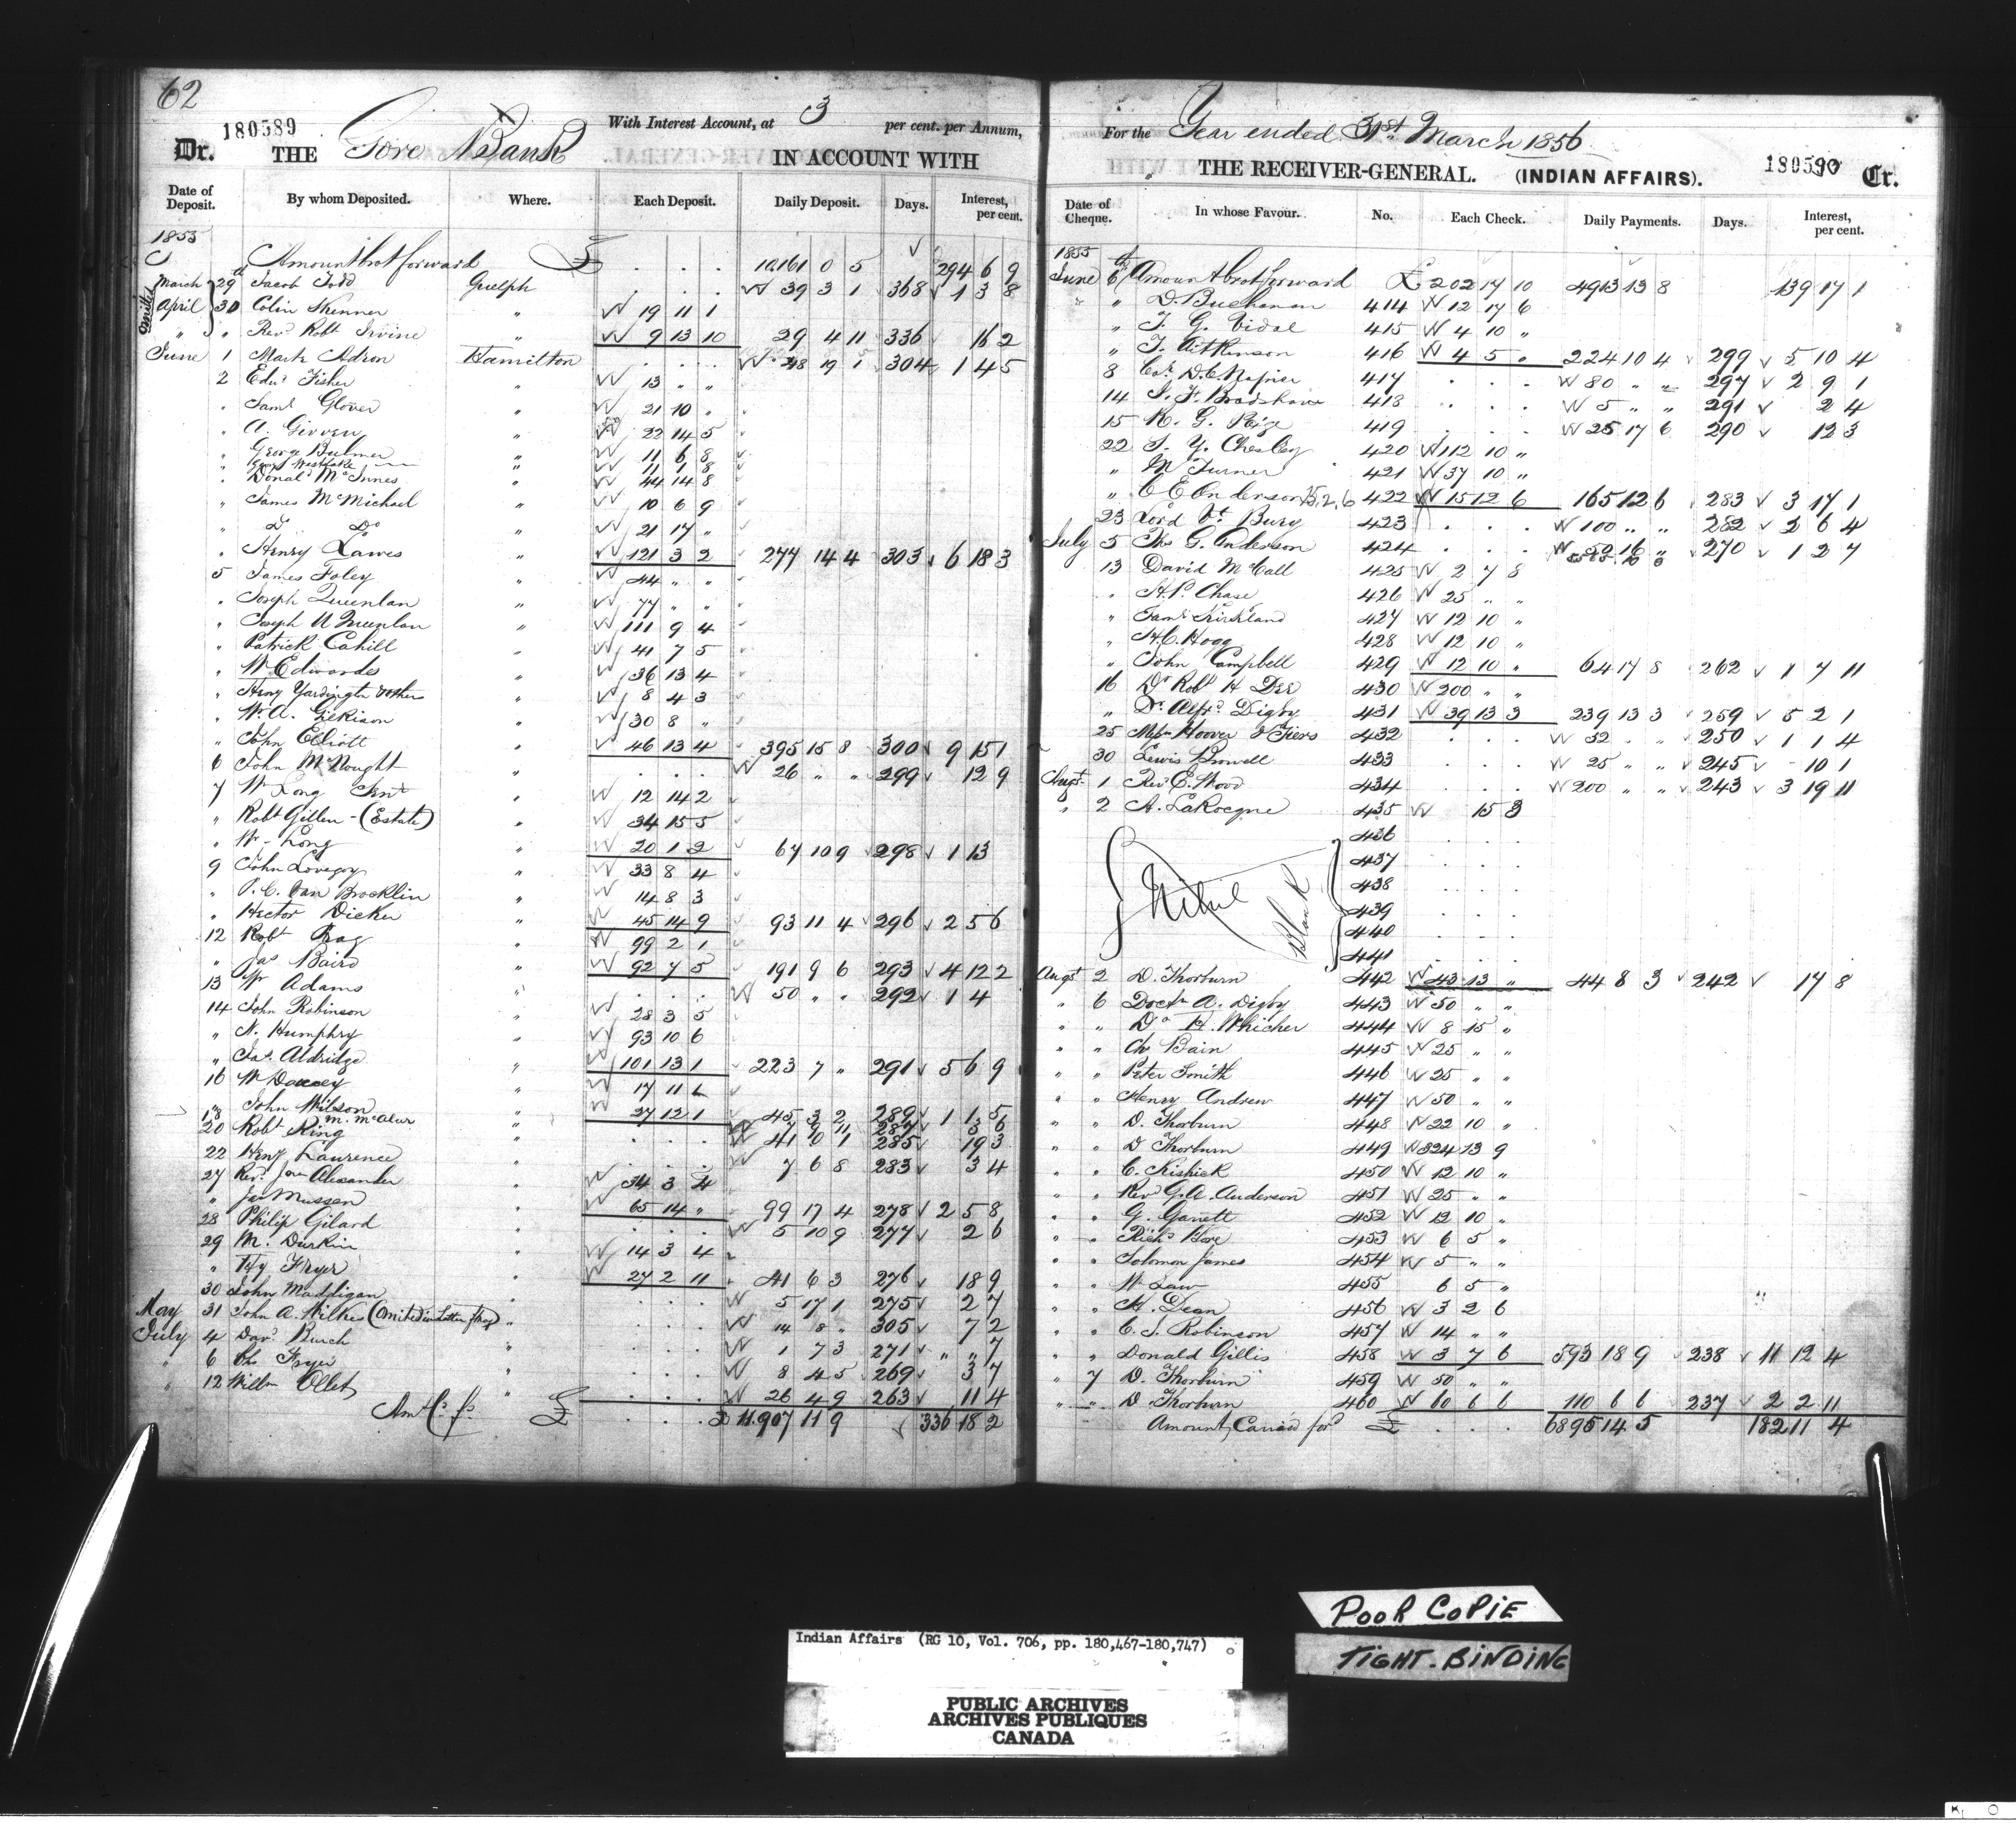 62
180589
Dr. THE Gore Bank With Interest Account, at 3 per cent. per Annum,
IN ACCOUNT WITH
Date of Deposit. By whom Deposited. Where. Each Deposit. Daily Deposit. Days. Interest, per cent.
1855
Amount brot forward £ 10161 0 5 294 6 9
omitted
March 29th Jacob Todd Guelph 39 3 1 368 1 3 8
April 30 Colin Skinner " 19 11 1
" " Revd Robt Irvine " 9 13 10 29 4 11 336 16 2
June 1 Mark Adron Hamilton 48 19 1 304 1 4 5
2 Edwd Fisher " 13 " "
" Saml Glover " 21 10 "
" A. Girven " 22 14 5
" George Bulmer " 11 6 8
" Geo Westlake " 11 1 8
" Donald McInnes " 44 14 8
" James McMichael " 10 6 9
" Do Do " 21 17 "
" Henry Lawes " 121 3 2 277 14 4 303 6 18 3
5 James Foley " 44 " "
" Joseph Quenlan " 77 " "
" Joseph U Quenlan " 111 9 4
" Patrick Cahill " 41 7 5
" Wm Edwardes " 36 13 4
" Heny Yardington " 8 4 3
" Wm A. Gilkison " 30 8 "
" John Elliott " 46 13 4 395 15 8 300 9 15 1
6 John McNought " 26 " " 299 12 9
7 Wm Long Senr " 12 14 2
" Robt Gillen - (Estate) " 34 15 5
" Wm Long " 20 1 2 67 10 9 298 1 13
9 John Lovejoy " 33 8 4
" P. C. Van Brocklin " 14 8 3
" Hector Dicker " 45 14 9 93 11 4 296 2 5 6
12 Robt " 99 2 1
" Jas Baird " 92 7 5 191 9 6 293 4 12 2
13 Wm Adams " 50 " " 292 1 4
14 John Robinson " 28 3 5
" N. Humphry " 93 10 6
" Jas Aldridge " 101 13 1 223 7 " 291 5 6 9
16 Wm " 17 11 1
" John Wilson " 27 12 1 45 3 2 289 1 1 5
18 M. McAlur " 7 9 11 287 3 6
20 Robt King " 41 0 1 285 19 3
22 Heny Laurence " 7 6 8 283 3 4
27 Revd Jas Alexander " 34 3 4
" Jas Mussen " 65 14 " 99 17 4 278 2 5 8
28 Philip Gilard 5 10 9 277 2 6
29 M. Durkin 14 3 4
" Hy Fryer " 27 2 11 41 6 3 276 18 9
30 John Maddigan " 5 17 1 275 2 7
May 31 John A. Wilkes " 14 8 " 305 7 2
July 4 Davd Burch " 1 7 3 271 " " 7
" 6 Chs Fryer " 8 4 5 269 3 7
" 12 Willm Ollet " 26 4 9 263 11 4
Amt Cd fd £ 11.907 11 9 336 18 2
For the Year ended 31st March 1856
THE RECEIVER-GENERAL. (INDIAN AFFAIRS). 180590 Cr.
Date of Cheque. In whose Favour. No. Each Check. Daily Payments. Days. Interest, per cent.
1855
June 6th Amount brot forward £ 202 17 10 4913 13 8 139 17 1
" " D. Buchanan 414 12 17 6
" T. G. Vidal 415 4 10 "
" T. Aitkinson 416 4 5 " 224 10 4 299 5 10 4
8 Col. D. C. Napier 417 80 " " 297 2 9 1
14 Bradshaw 418 5 " " 291 2 4
15 K. G. Paige 419 25 17 6 290 12 3
22 S. Y. Chesley 420 112 10 "
" W Turner 421 37 10 "
" C E Anderson 15.2.6 422 15 12 6 165 12 6 283 3 17 1
23 Lord Vt Bury 423 100 " " 282 2 6 4
July 5 Ths G. Anderson 424 50 16 " 270 1 2 7
13 David McCall 425 2 7 8
" H. P. Chase 426 25 " "
" Saml Kirkland 427 12 10 "
" H. C. Hogg 428 12 10 "
" John Campbell 429 12 10 " 64 17 8 262 1 7 11
16 Dr Robt H Dee 430 200 " "
" Dr Alfd Digby 431 39 13 3 239 13 3 259 5 2 1
25 Messrs Hoover & Fiers 432 52 " " 250 1 1 4
30 Lewis Burwell 433 25 " " 245 10 1
Augt 1 Revd E. Wood 434 200 " " 243 3 19 11
" 2 A. LaRocque 435 15 3
436
437
Nihil Blank 438
439
440
441
Augt 2 D. Thorburn 442 43 13 " 44 8 3 242 17 8
" 6 Doctr A. Digby 443 50 " "
" " Do H. Whicher 444 8 15 "
" " Chs Bain 445 25 " "
" " Peter Smith 446 25 " "
" " Henry Andrew 447 50 " "
" " D. Thorburn 448 22 10 "
" " D Thorburn 449 324 13 9
" " C. Kishick 450 12 10 "
" " Revd G. A. Anderson 451 25 " "
" " G. Garrett 452 12 10 "
" " Richd Bore 453 6 5 "
" " Solomon James 454 5 " "
" " Wm Law 455 6 5 "
" " H. Dean 456 3 2 6
" " C. J. Robinson 457 14 " "
" " Donald Gillis 458 3 7 6 593 18 9 238 11 12 4
" 7 D. Thorburn 459 50 " "
" " D. Thorburn 460 60 6 6 110 6 6 237 2 2 11
Amount Carried ford £ 6895 14 5 182 11 4
POOR COPIE
TIGHT. BINDING
Indian Affairs (RG 10, Vol. 706, pp. 180,467-180,747)
PUBLIC ARCHIVES
ARCHIVES PUBLIQUES
CANADA